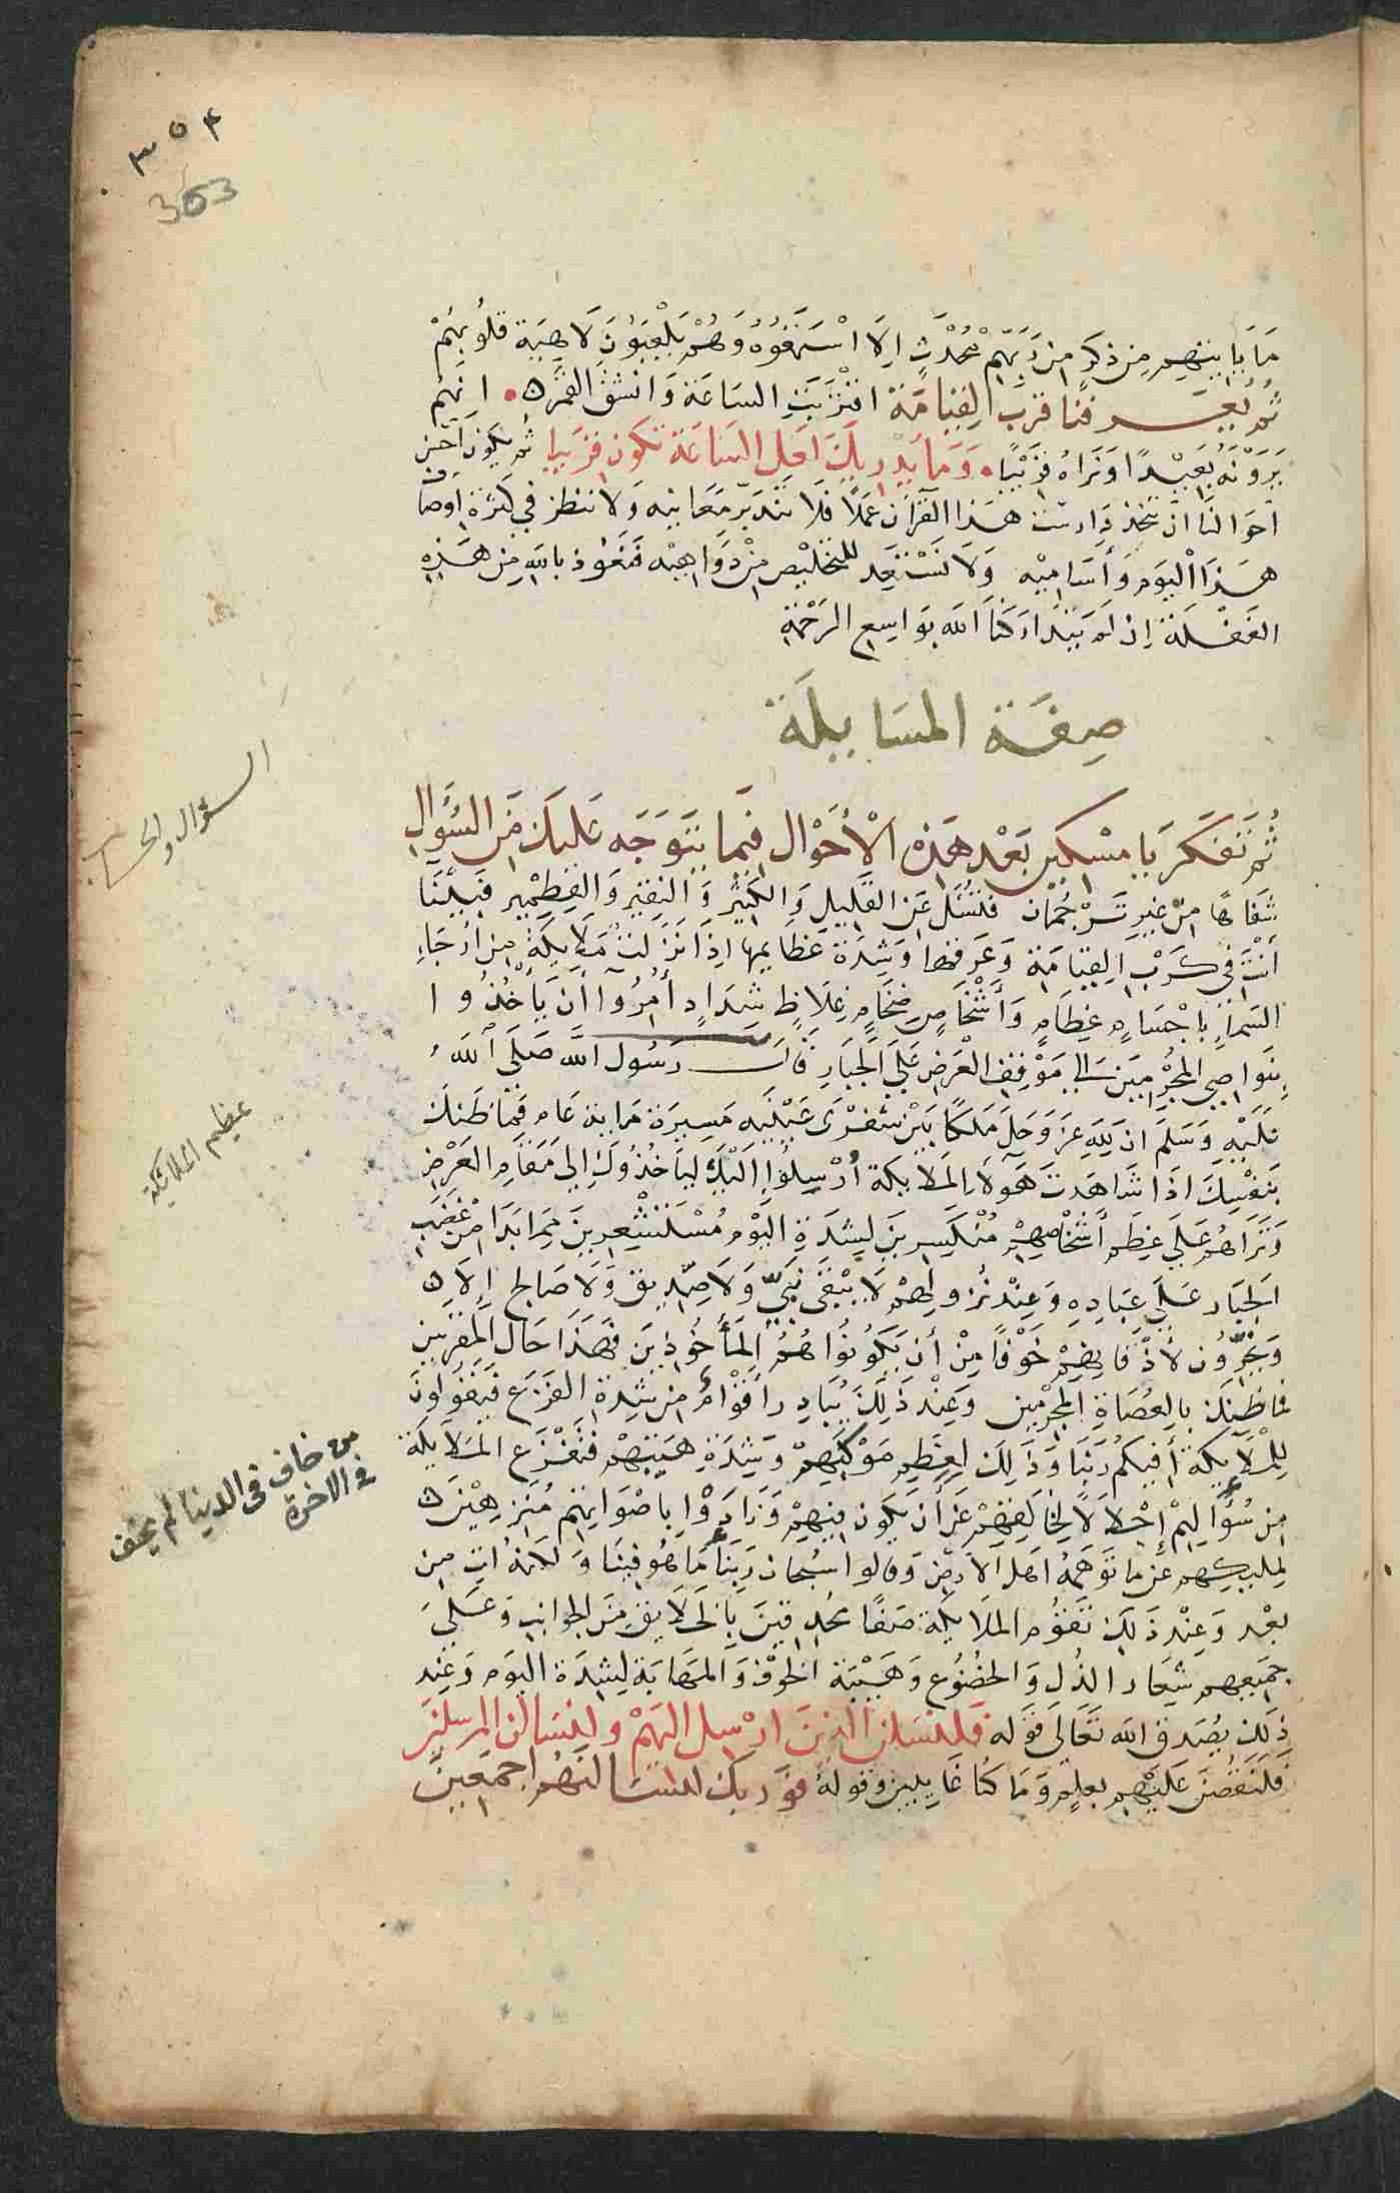 ٣٥٤
353
مَا يَأتِيهِم مِن ذِكرٍ مِن رَبِّهِم مُحْدَثٍ اِلَا اسْتَمَعُوُهُ وَهُمْ يَلْعَبَوُنَ لَاهِيَة قلُوبُهُمْ
ثُم يُعَرِّفنَا قربَ القِيَامَة اقتْرَبَتِ السَاعَة وَانشقَّ القمَرُ انهُم
يَرَوْنَهُ بَعيْدًا وَنَرَاهُ قرَيْبًا وَمَا يُدْرِيكَ لعَل السَاعَة تكون قريبا ثم يكون احْسَن
احَوَالنَا ان نتخذ دَراسَة هَذا القرْان عَملًا فلَا نتدَبّر مَعَانيه وَلا ننظر في كثرَة اوصَاف
هَذَا اليَوم وَأسَامِيْه وَلا نَسْتَعِد للتخليْص مِنْ دَوَاهيْه فنَعُوذ بالله مِن هَذِه
الغَفْلَة اِن لَم يَتَدَاركنَا الله بوَاسِع الرَحْمَة
صِفَة المسَايلَة
ثُم تَفكَّر يَا مِسْكِين بَعْد هَذِهِ الْأحْوَال فِيمَا يَتَوَجَه عَليكَ مِنَ السُؤَالِ
شِفَاهًا مِنْ غَير تَرْجُمَان فَتسُئَل عَن القَليل وَالكثِيْرِ وَالنقيْر وَالقِطِمْيِر فبَيْنَا
أنتَ في كرْبِ القيَامَة وَعَرقهَا وَشِدَة عَظايمهَا اِذا نزَلتْ مَلايكة مِن أرجَاءِ
السَمآءِ باجْسَامٍ عِظَامٍ وَأشخَاصٍ ضِخَامٍ غِلَاظٍ شِدَادٍ أمُرُوا أَن يَأخُذُوا
بنَواصِي المُجْرِمِيَن اِلى مَوْقِفِ الْعَرضِ عَلىَ الجَبَارِ قَالَ رَسُول الله صَلَى الله
عَلَيْهِ وَسَلمَ ان لِلَّهِ عَزَ وَجَلَ مَلكًا بَيْن شفرْى عَيْنَيه مَسِيرَة مَاية عَام فَما ظَنك
بِنَفْسِكَ اذَا شَاهَدتَ هَؤلَاءِ المَلايكة أُرْسِلُوا اِلَيْكَ ليَأخُذُوكَ اِلى مَقَام العَرْضِ
وَتَرَاهُم عَلَى عِظَم أَشْخَاصِهمْ مُنْكَسِرِينَ لِشِدَةِ اليَوْم مُسْتَشْعِرِينَ مِمَا بَدَا مِنْ غضَب
الجَبَار عَلَى عِبَادِهِ وَعِنْد نُزولِهمْ لَا يَبْقَى نَبيّ وَلا صِدّيق وَلا صَالح اِلا
وَيَخِرُّون لأذْقَانِهِمْ خَوْفًا مِنْ أن يَكَوُنُوا هُمُ المَأخُوذينَ فهَذَا حَال المُقَرَبين
فمَا ظنكَ بالعُصَاةِ المجْرمِين وَعِنْد ذَلِكَ يُبَادِر أقوَامٌ مِن شدَة الفزَع فيَقوُلونَ
لِلمَلَايكَة أفِيكُم رَبّنَا وَذَلِكَ لِعِظَمِ مَوْكبِهِمْ وَشِدَةِ هَيبَتِهِمْ فَتَفْزَع المَلَايكَة
مِن سُؤَالِهِمْ إجْلَالًا لِخالِقِهِمْ عَن أن يَكون فِيْهِمْ وَنَادَوْا بأصْوَاتِهِم مُنَزِهِيْن
لملِيكِهِم عَن مَا تَوَهَمُه اهَل الارضِ وَقالوا سُبحَان رَبِنَا مَا هُو فِينَا وَلكنهُ اتٍ مِن
بعْد وَعِنْد ذَلِكَ تَقوُم المَلَايكَة صَفًا محْدِقينَ بالخَلَايق مِنَ الجوَانِب وَعَلَى
جَمِيَعِهِم شِعَار الذُل وَالخضُوع وَهَيْبَة الخَوْف وَالمَهَابَة لِشِدَة اليَوم وَعِند
ذلِكَ يصُدق الله تَعَالى قوَله فَلَنسَئلن الذينَ ارْسِل اليَهْم ولَنسَالن المرسَلين
فَلَنَقُصَنَ عَلَيْهِم بعِلمٍ وَمَا كنُا غَايبِين وَقولهُ فوَرَبكَ لَنسَالنهُم اجمَعِينَ
السؤال والحساب
عظيم الملائكة
من خاف فى الدنيا لم يخف
فى الاخرة